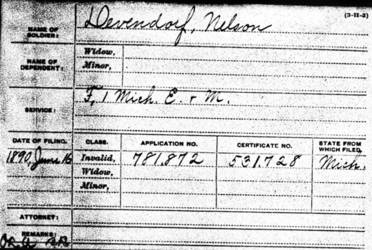 (3-11-2)
NAME OF SOLDIER: Devendorf, Nelson
NAME OF DEPENDENT: Widow,
Minor,
SERVICE: F, 1 Mich. E. & M.
DATE OF FILING. CLASS. APPLICATION NO. CERTIFICATE NO. STATE FROM WHICH FILED.
1890, June 16 Invalid, 781.872 531.728 Mich.
Widow,
Minor,
ATTORNEY:
REMARKS: